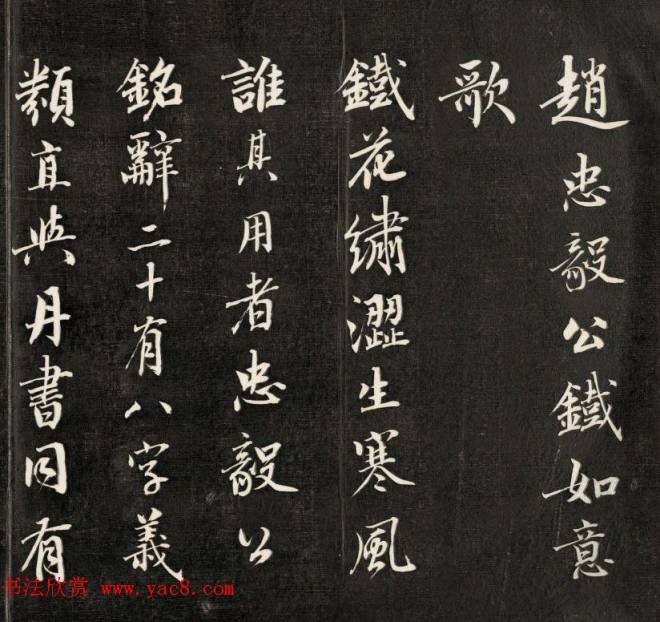 趙忠毅公鐵如意
歌
鐵花繡澀生寒風
誰其用者忠毅公
銘辭二十有八字義
類直與丹書同有
书法欣赏 www.yac8.com